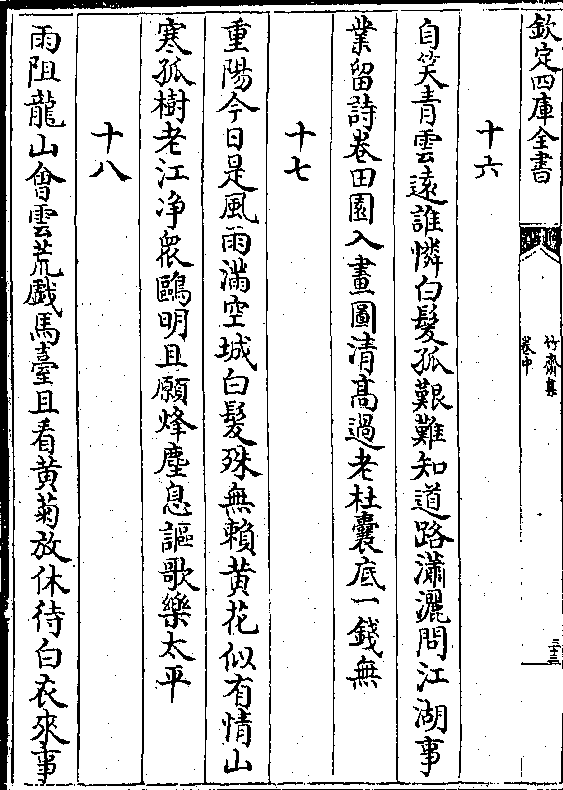 欽定四庫全書
竹齋集
卷中
三十三
十六
自笑青雲遠誰憐白髮孤艱難知道路瀟灑問江湖事
業留詩卷田園入畫圖清髙過老杜囊底一錢無
十七
重陽今日是風雨滿空城白髮殊無賴黄花似有情山
寒孤樹老江浄衆鷗明且願烽塵息謳歌樂太平
十八
雨阻龍山會雲荒戲馬臺且看黄菊放休待白衣來事